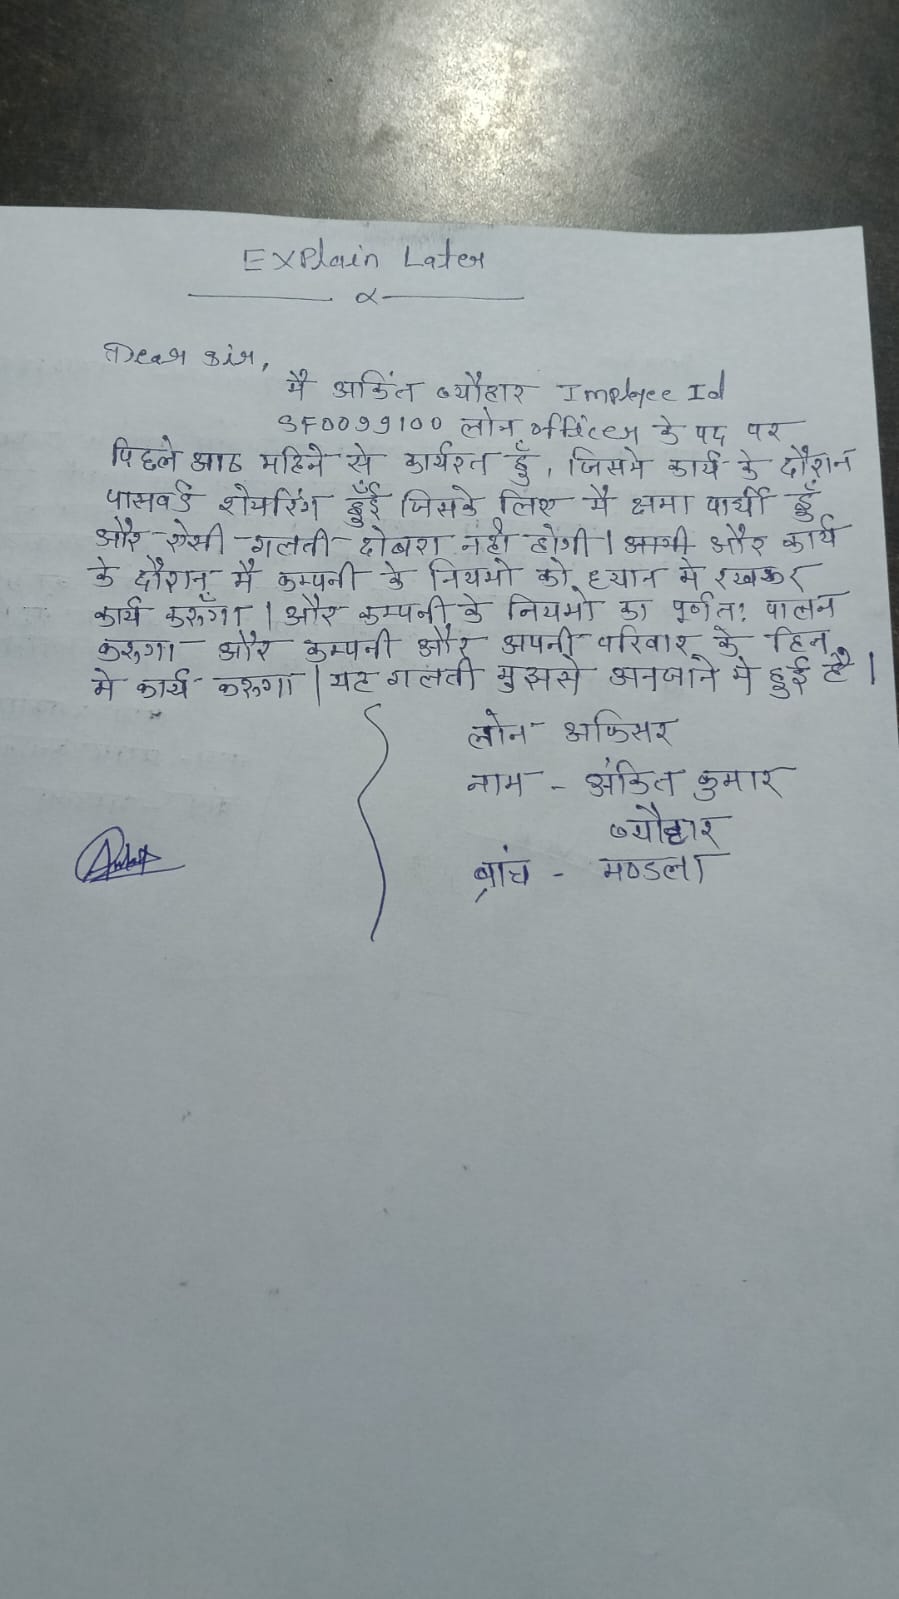 Explain Later
Dear Sir,
मै अकिंत ब्यौहार Imployee Id
SF0099100 लोन officer के पद पर
पिछले आठ महिने से कार्यरत हुँ, जिसमे कार्य के दौरान
पासवर्ड शेयरिंग हुँई जिसके लिए मै क्षमा पार्थी हुँ
और ऐसी गलती दोबरा नही होगी। आगी और कार्य
के दौरान मै कम्पनी के नियमो को ध्यान मे रखकर
कार्य करुँगा। और कम्पनी के नियमो का पूर्णत: पालन
करुगा और कम्पनी और अपनी परिवार के हित
मे कार्य करुगा। यह गलती मुझसे अनजाने मे हुई है।
लोन अफिसर
नाम - अंकित कुमार
ब्यौहार
ब्रांच - मण्डला